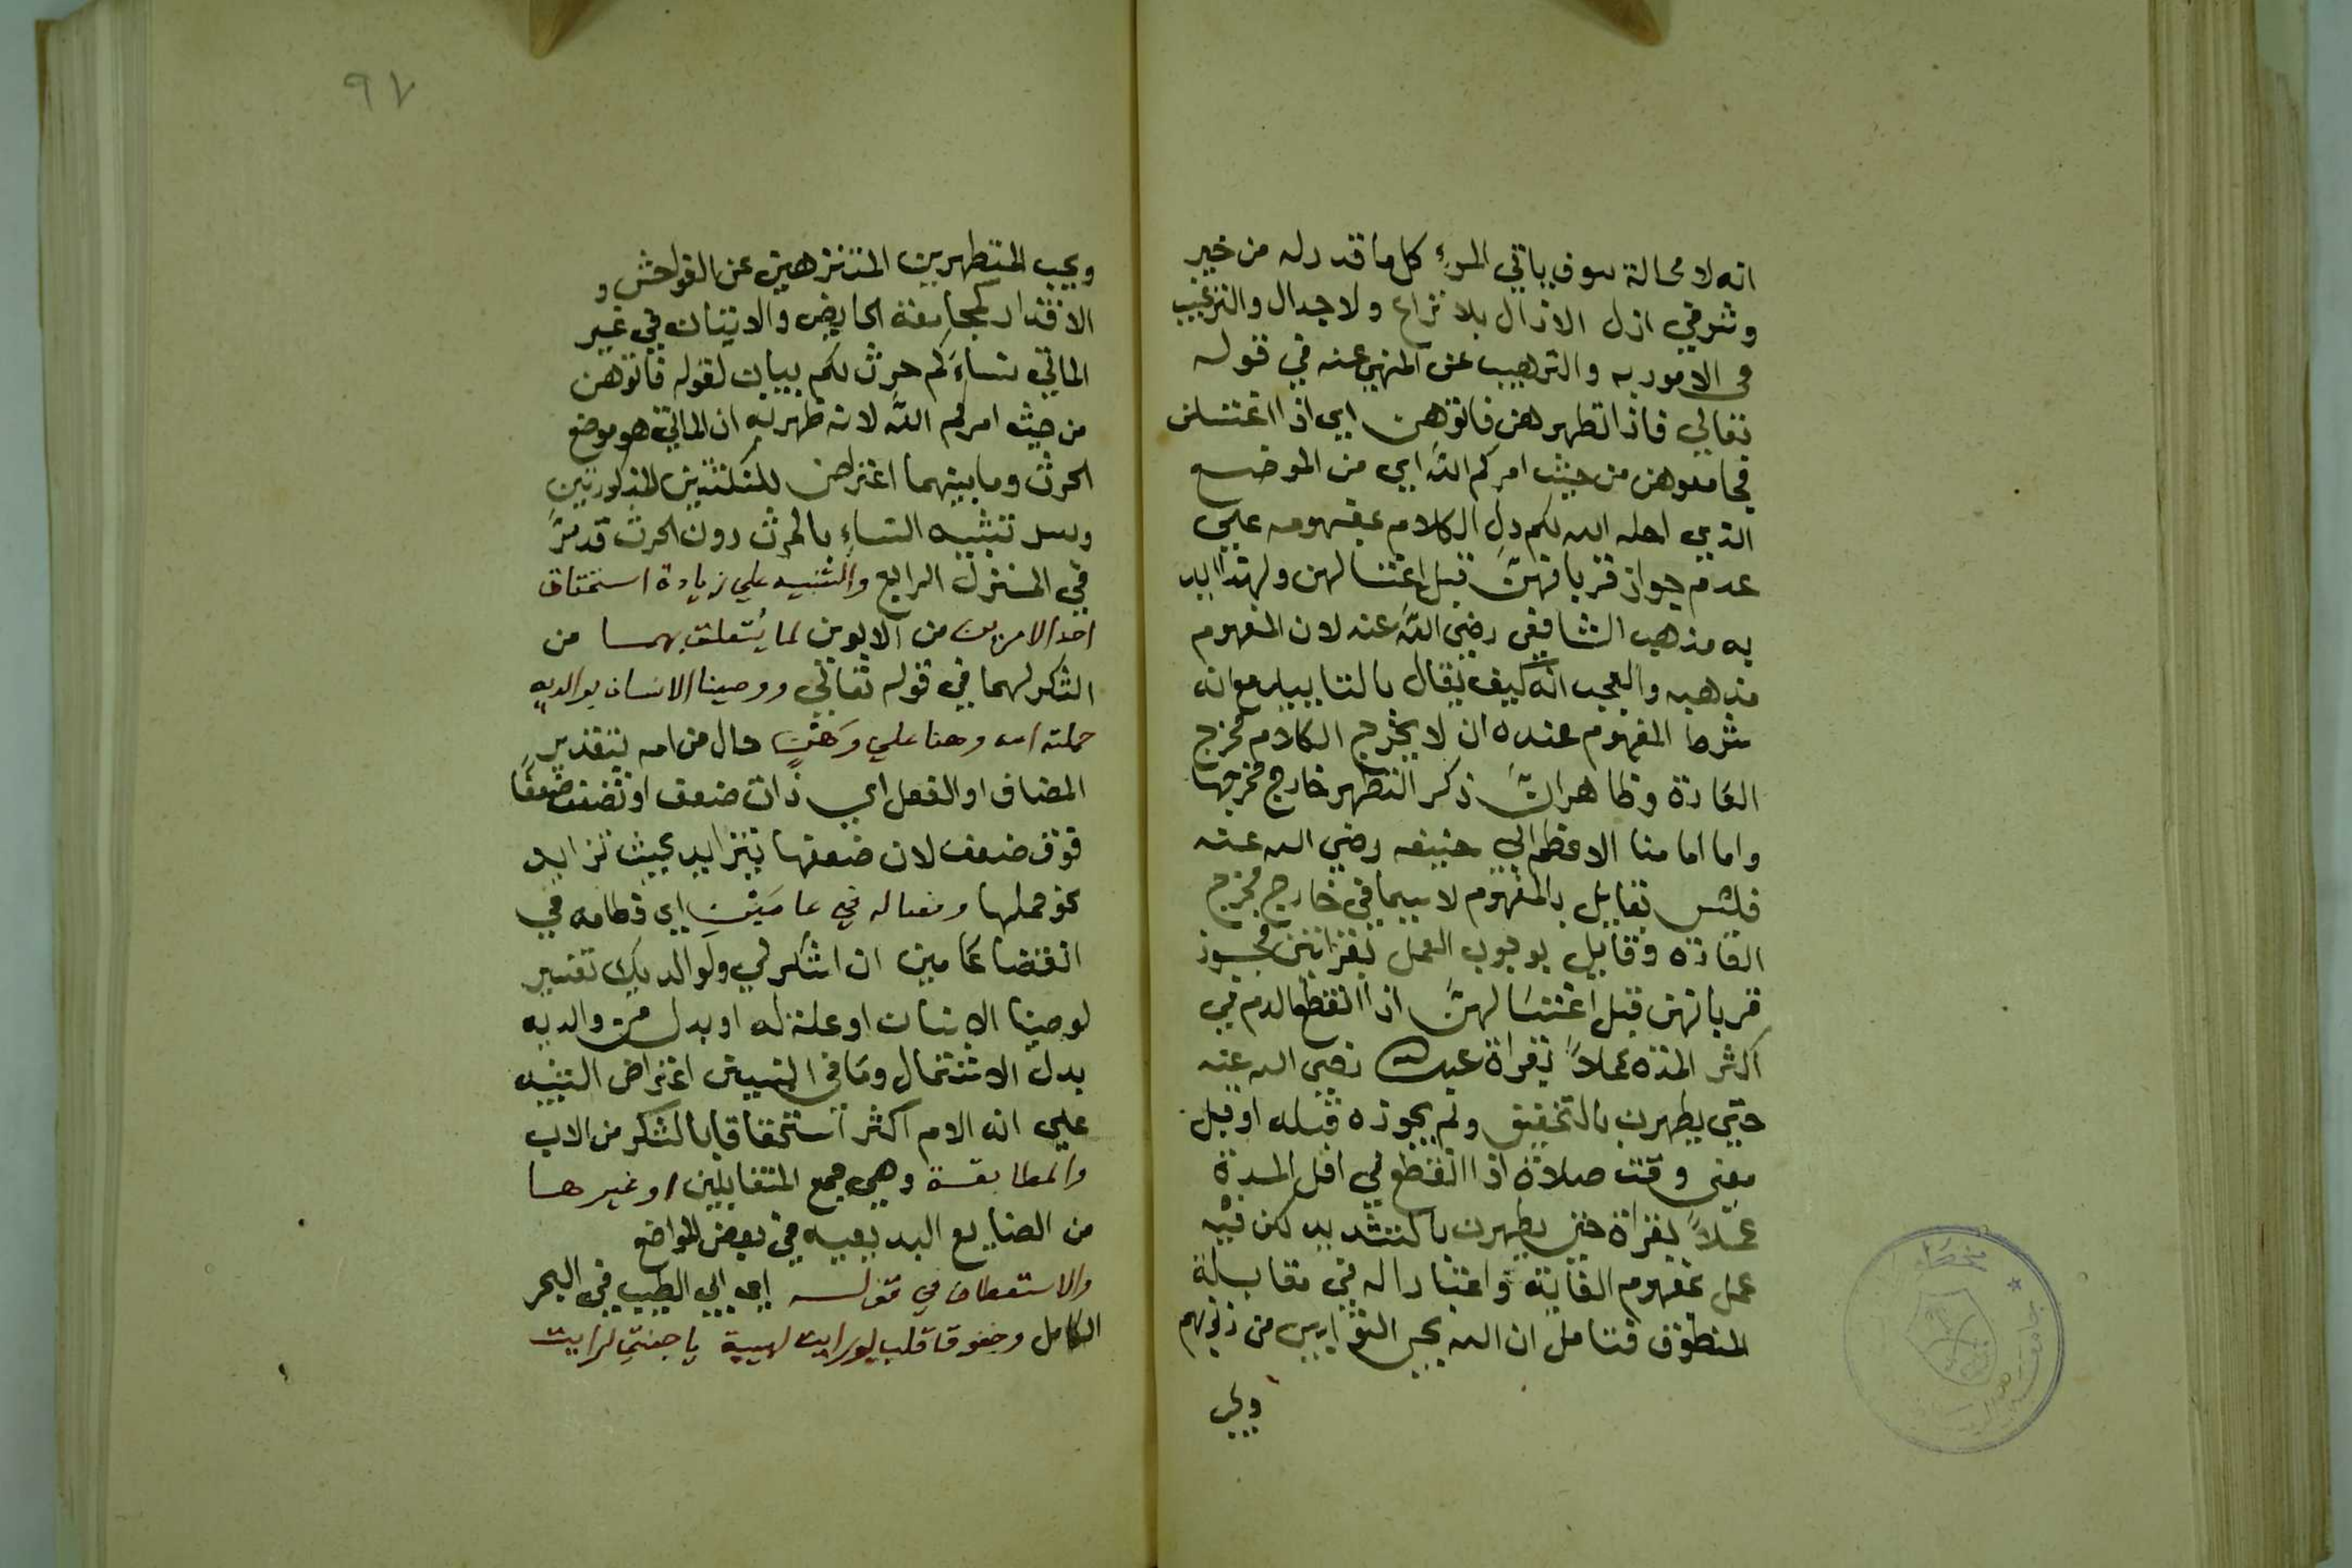 انه لا محالة سوف ياتي المرءِ كل ما قدر له من خير
وشر في ازل الازال بلا نزاع ولا جدال والترغيب
في الامور به والترهيب عن المنهي عنه في قوله
تعالي فاذا تطهرهن فاتوهن اي اذا اغتسلن
فجامعوهن من حيث امركم الله اي من الموضع
الذي احله الله لكم دل الكلام بمفهومه علي
عدم جواز قربانهنَّ قبل اغتسالهن ولهذا
به مذهب الشافعي رضي الله عنه لان المفهوم
مذهبه والعجب انه كيف يقال بالتاييد مع انه
شرط المفهوم عنده ان لا يخرج الكلام مخرج
العادة وظاهر انَّ ذكر التطهر خارج مخرجها
واما امامنا الاعظم ابي حنيفه رضي الله عنه
فليس بقايل بالمفهوم لا سيما في خارج مخرج
العادة وقايل بوجوب العمل بقراتين مجوز
قربانهن قبل اغتسالهنَّ اذا انقطع الدم في
اكثر المدة عملاً بقراة رضي الله عنه
حتي يطهرن بالتخفيف ولم يجوزه قبله او قبل
مضي وقت صلاة اذا انقطع في اقل المدة
عملاً بقراة حتي يطهرن بالتشديد لكن فيه
عمل بمفهوم الغاية واعتبارا له في مقابلة
المنطوق فتامل ان الله يحب التوابين من ذنوبهم
ويحب
٩٧
ويحب المتطهرين المتنزهين عن الفواحش و
الاقذار كمجامعة الحايض والاتيان في غير
الماتي نساءَكم حرث لكم بيان لقوله فاتوهن
من حيث امركم الله لانه ظهر به ان الماتي هو موضع
الحرث وما بينهما اعتراض للنكتتين المذكورتين
وسر تشبيه النساءِ بالحرث دون الحرث قد مرَّ
في المنزل الرابع والتنبيه علي زيادة استحقاق
احد الامرين من الابوين لما يُتعلق بهما من
الشكر لهما في قوله تعالي ووصينا الانسان بوالديه
حملته امه وهنا علي وَهْنٍ حال من امه بتقدير
المضاف او الفعل اي ذات ضعف او تضعف ضعفًا
فوق ضعف لان ضعفها يتزايد بحيث تزايد
نحو حملها وفصاله في عامَيْنِ اي فطامه في
انقضا عامين ان اشكر لي ولوالديك تفسير
لوصينا الانسان او علة له او بدل من والديه
بدل الاشتمال وما في البين اعتراض التنبيه
علي ان الام اكثر استحقاقا بالشكر من الاب
والمطابقة وهي جمع المتقابلين او غيرها
من الصنايع البديعيه في بعض المواضع
والاستعطاف في قوله اي ابي الطيب في البحر
الكامل وخفوق قلب لو رايت لهيبه يا جنتي لرايت